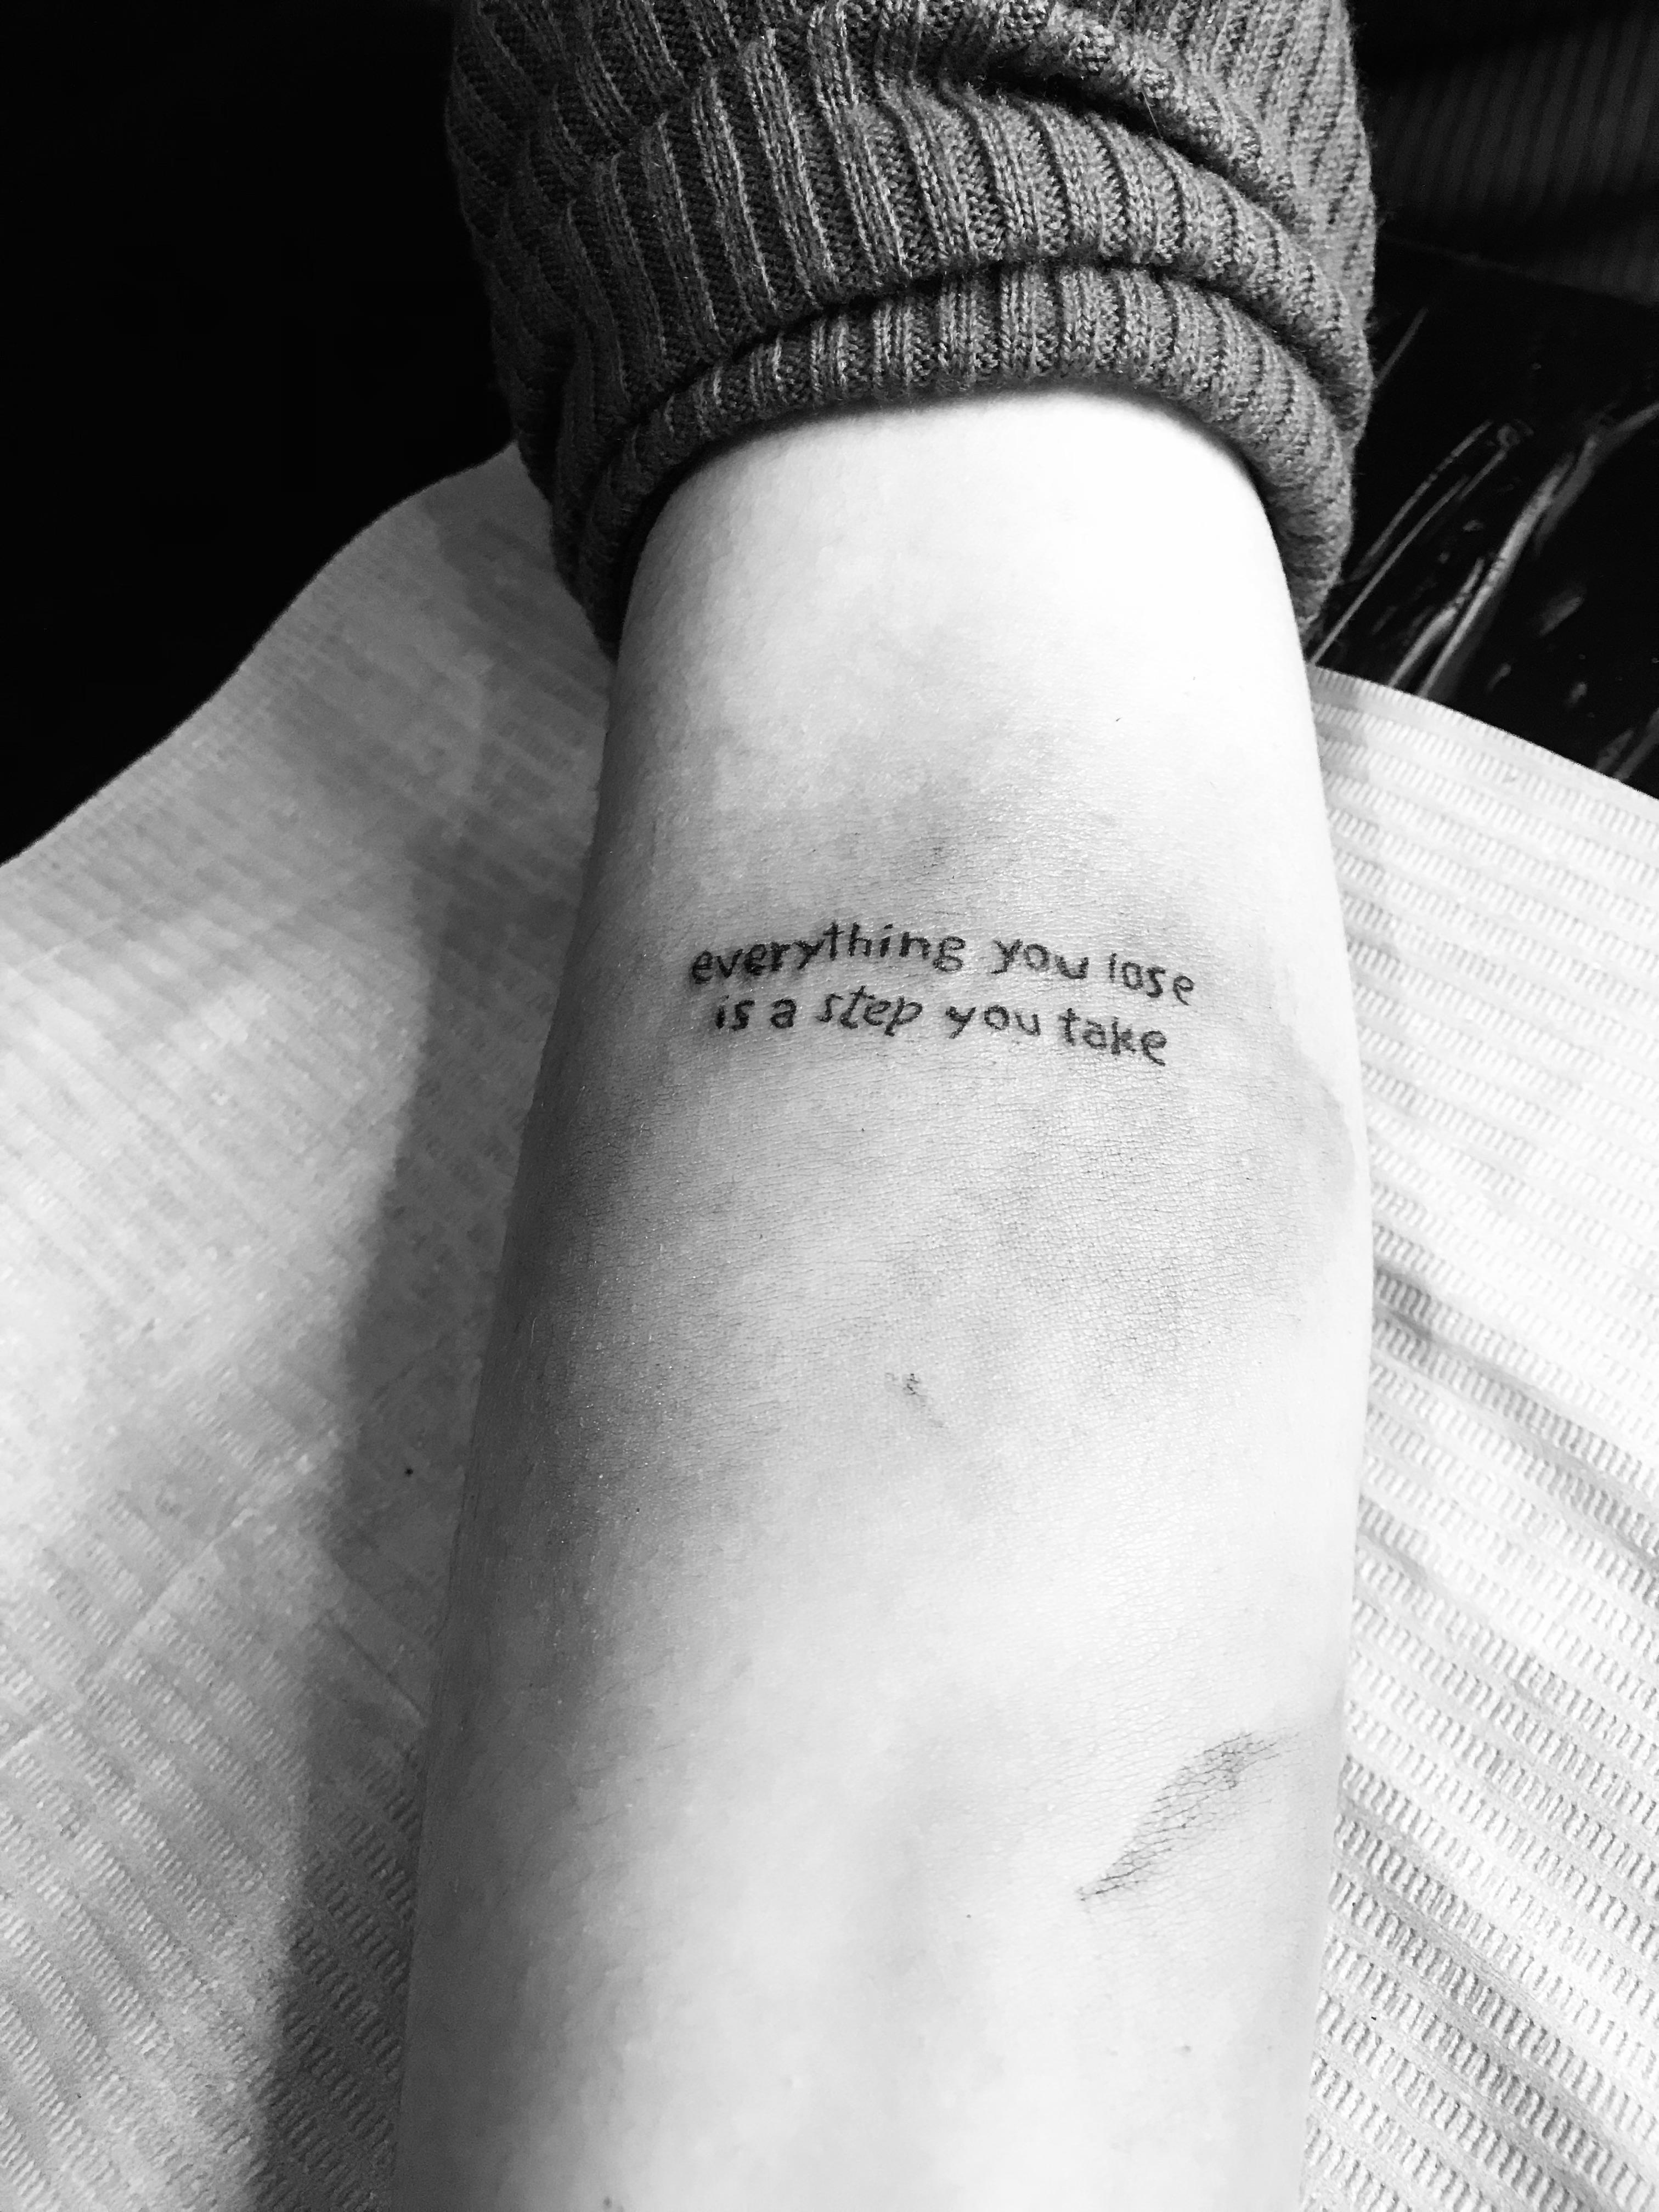 everything you lose
is a step you take